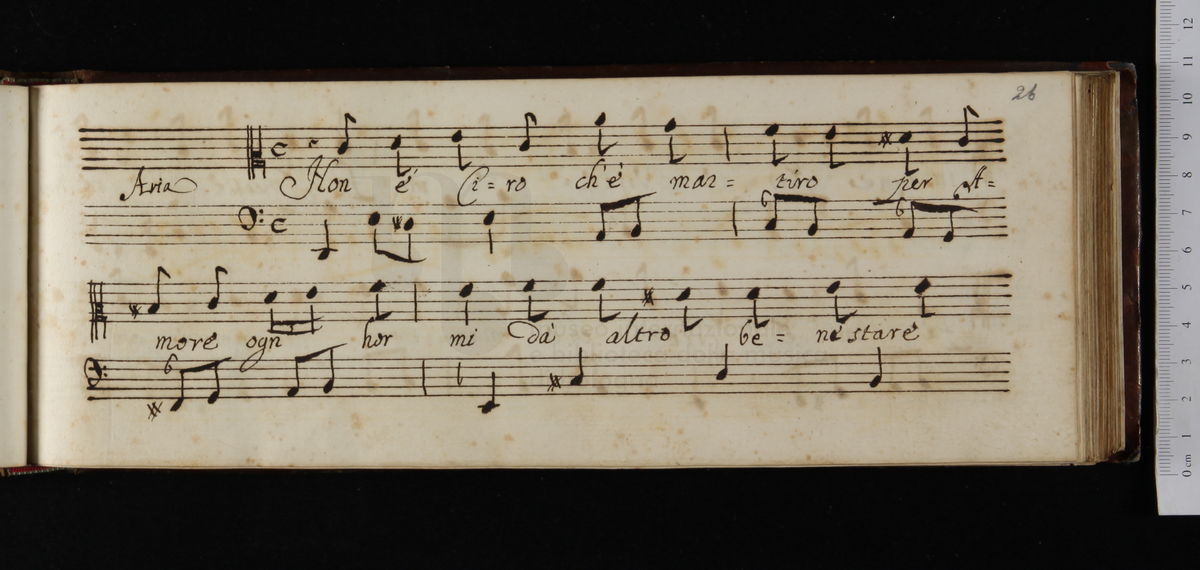 26
Aria Non é Ci=ro ch'é mar= tiro per A=
6 6
more ogn hor mi da altro be= ne stare
6 6
12 11 10 9 8 7 6 5 4 3 2 1 0 cm